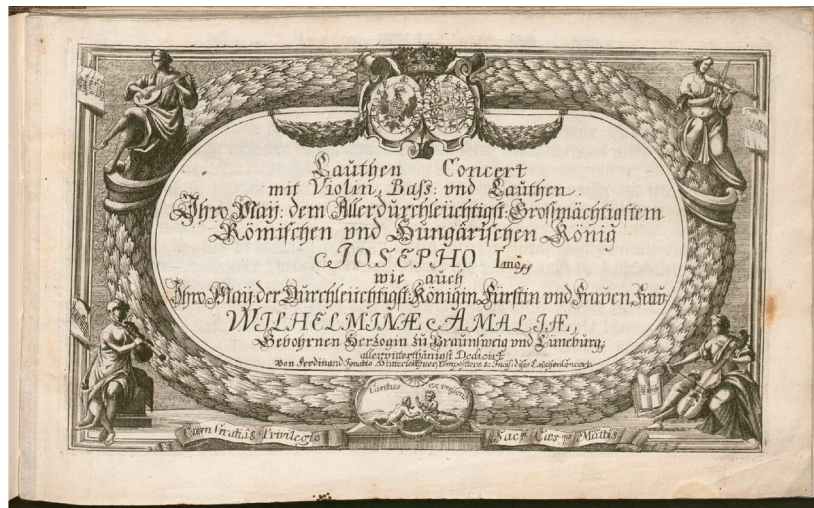 Lauthen Concert
mit Violin, Bass: vnd Lauthen.
Ihro May: dem Allerdurchleüchtigst: Grosmächtigstem
Römischen vnd Hungarischen König
JOSEPHO I.mo
wie auch
Ihro May: der Durchleüchtigst: Königin Fürstin vnd Frauen, Frau
WILHELMINÆ AMALIÆ,
Gebohrnen Herzogin zu Braunsweig vnd Lüneburg,
allerunterthänigst Dedicirt
Von Ferdinand Ignatio Hinterleithner, Compositore
Cantus ex unisono
Cum Gratia & Privilegio
Sac: Cæs: